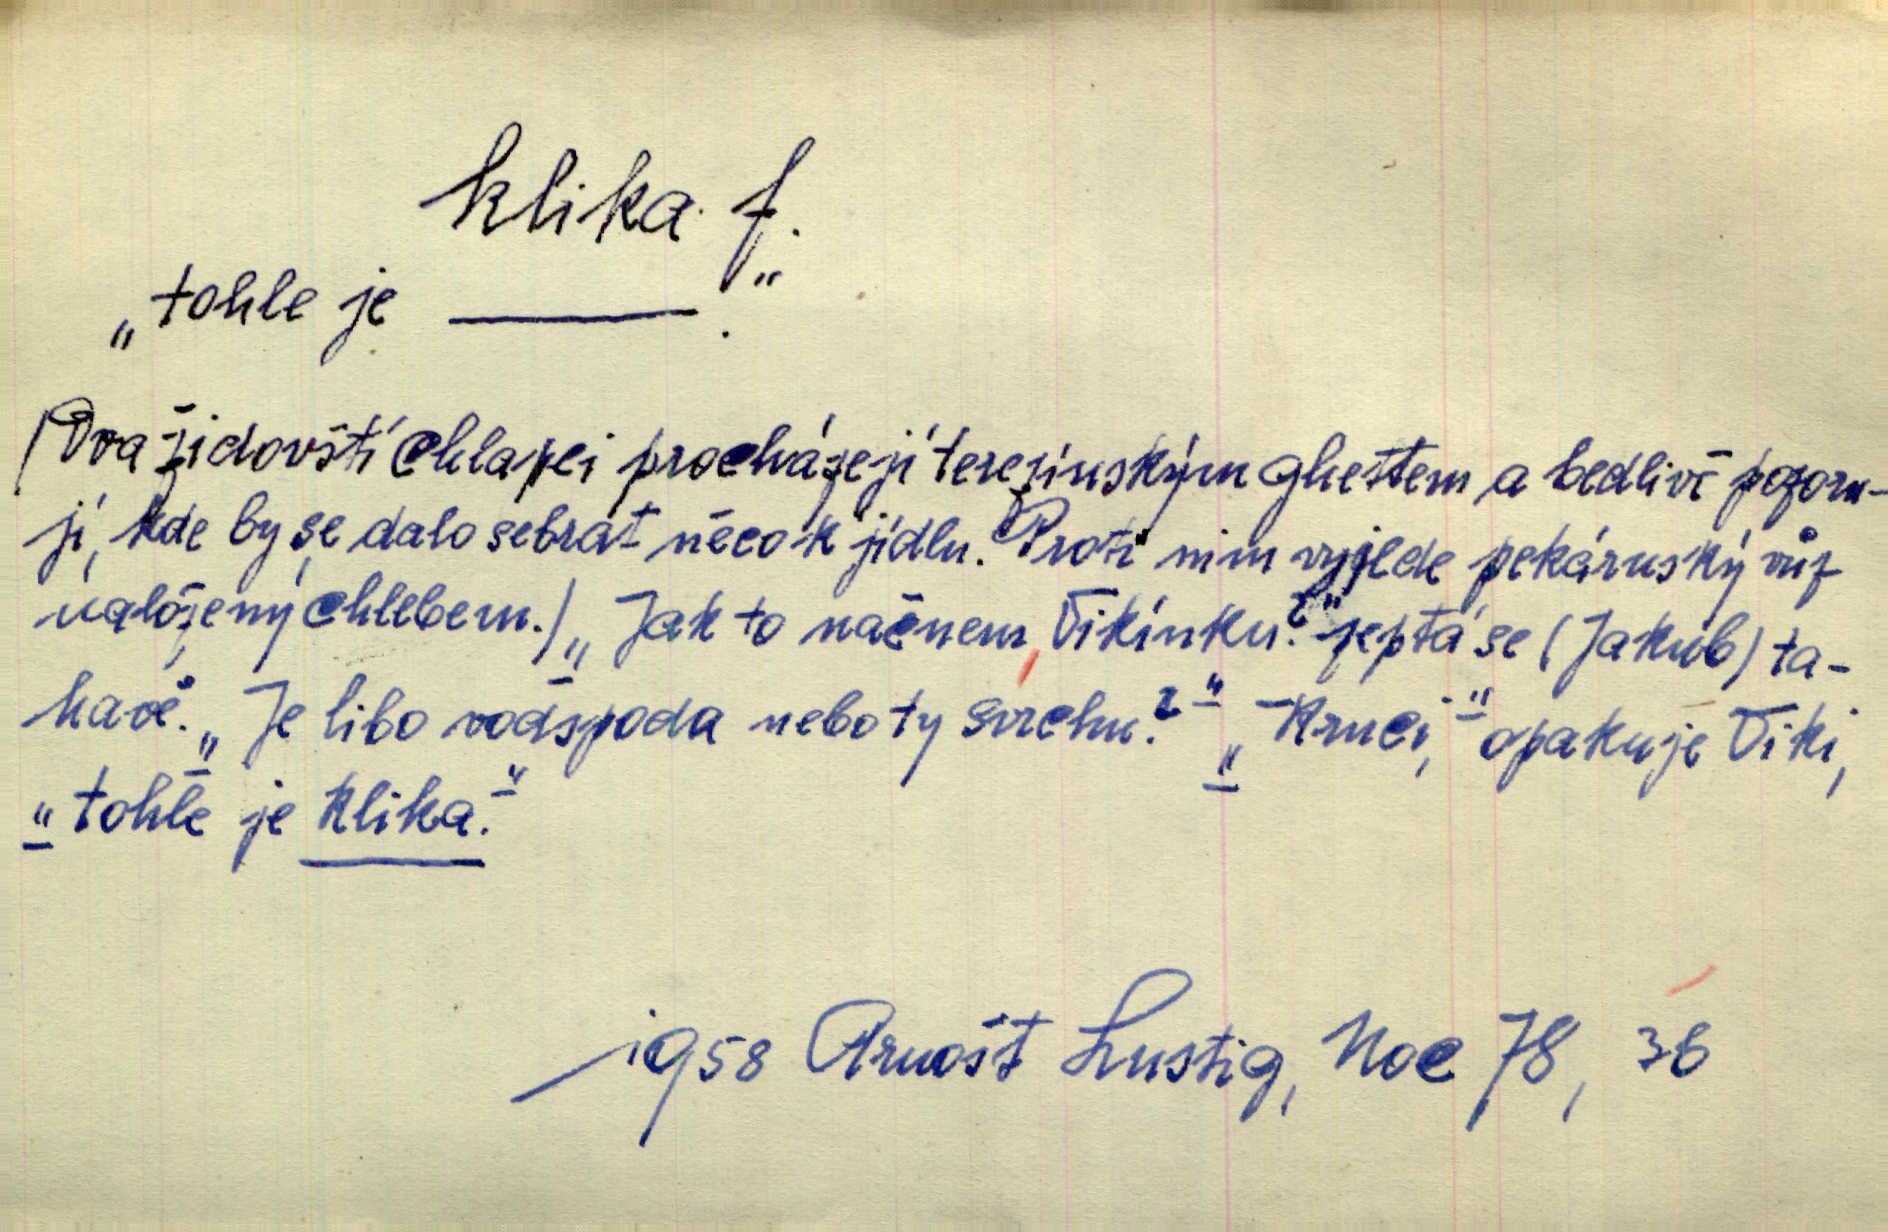 klika f.
„tohle je ———."
(Dva židovští chlapci procházejí terezínským ghettem a bedlivě pozoru-
jí, kde by se dalo sebrat něco k jídlu. Proti nim vyjede pekárnský vůz
naložený chlebem.) „Jak to načnem, Vikínku?" zeptá se (Jakub) ta-
havě. „Je libo vodspoda nebo ty svrchu?" „Kruci," opakuje Viki,
„tohle je klika."
1958 Arnošt Lustig, Noc 78, 36